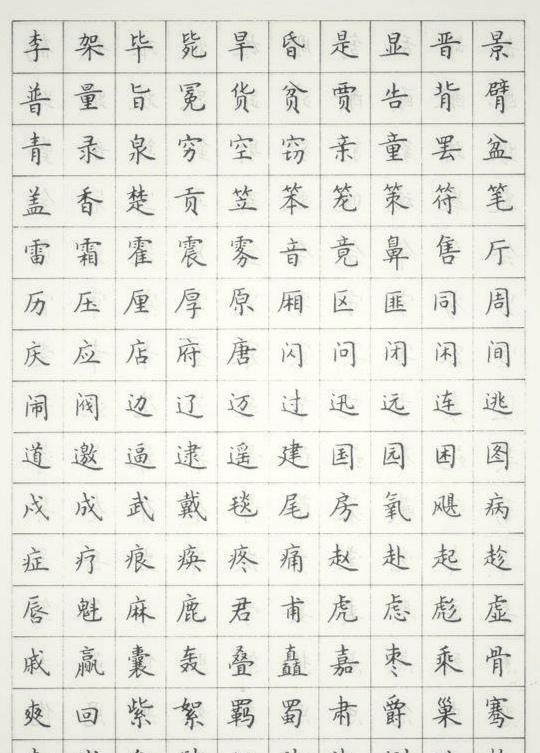 李架毕毙旱昏是显晋景
普量旨冕货贫贾告背臂
青录泉穷空窃亲童罢盆
盖香楚贡笠笨笼策符笔
雷霜霍震雾音竟鼻售厅
历压厘厚原厢区匪同周
庆应店府唐闪问闭闲间
闹阀边辽迈过迅远连逃
道邀逼逮遥建国园困图
戍成武戴毯尾房氧飓病
症疗痕痪疼痛赵赴起趁
唇魁麻鹿君甫虎虑彪虚
戚赢囊轰叠矗嘉枣乘骨
爽回紫絮羁蜀肃爵巢骞